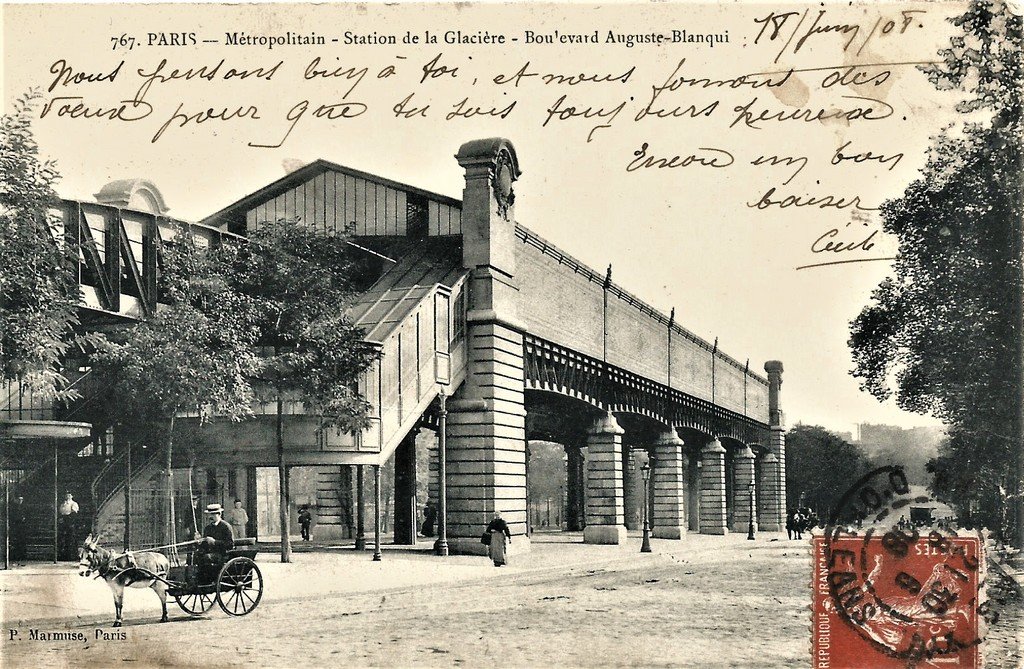 767. PARIS — Métropolitain - Station de la Glacière - Boulevard Auguste-Blanqui
18/Juin/08.
Nous pensons bien à toi, et nous formons des
voeux pour que tu sois toujours heureuse.
Encore un bon
baiser
Cécile
P. Marmuse, Paris
POSTES
RÉPUBLIQUE FRANÇAISE